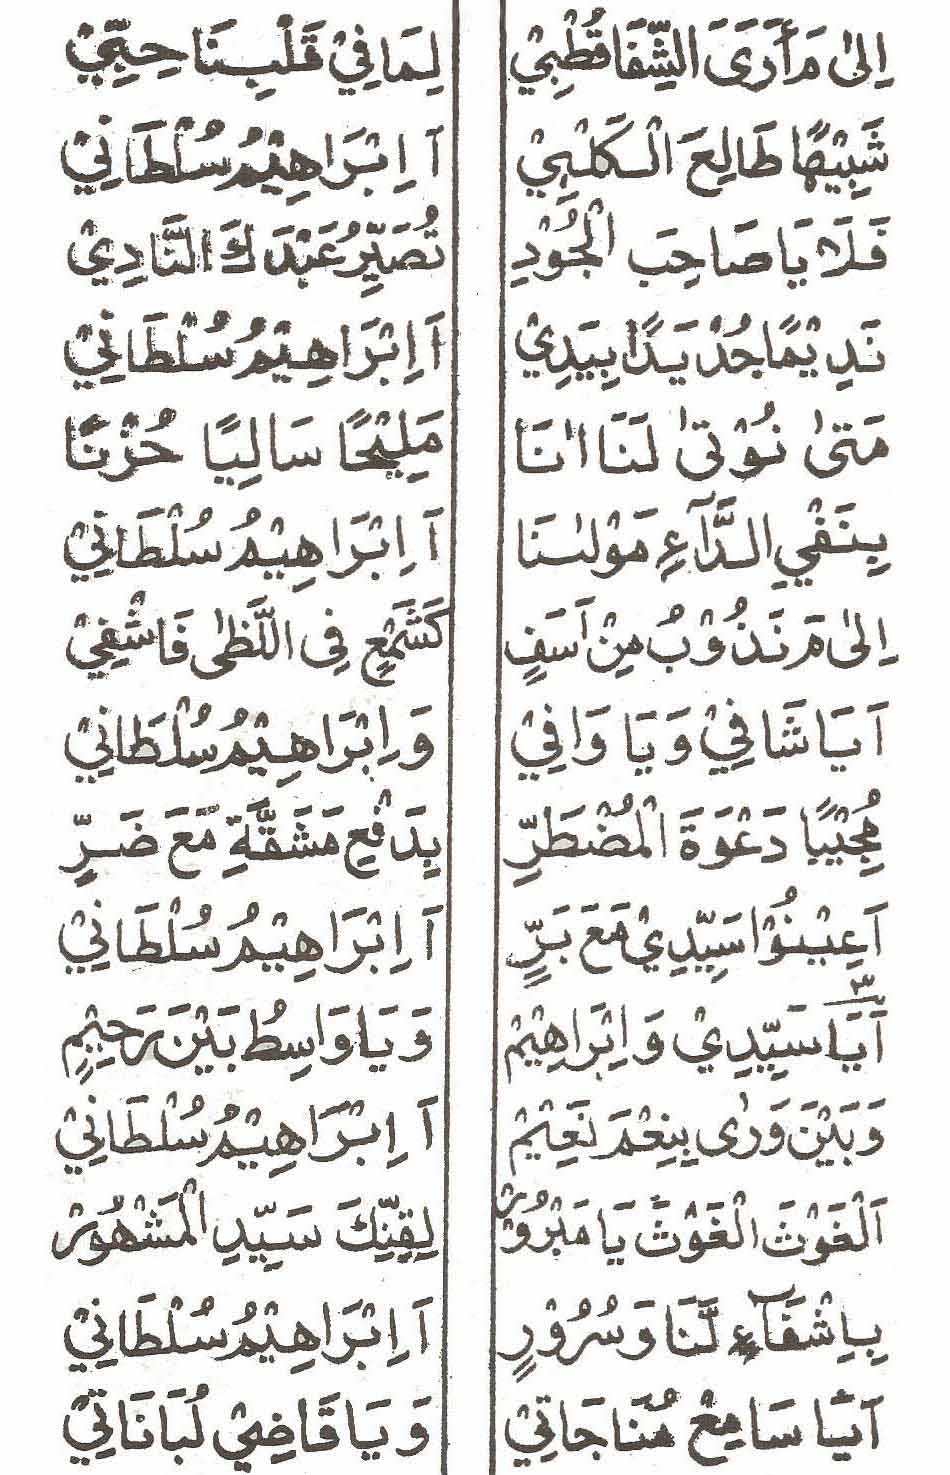 اِلىٰ مَ أَرَىٰ الشِّفَا قُطْبِيْ لِمَا فِيْ قَلْبِنَا حِبِّيْ
شَبِيْهًا طَالِعَ الْكَلْبِيْ آ اِبْرَاهِيْمُ سُلْطَانِيْ
فَلَا يَا صَاحِبَ الْجُوْدِ تُصَيِّرُ عَبْدَكَ النَّادِيْ
نَدِيْمًا جُدْ يَدًا بِيَدِيْ آ اِبْرَاهِيْمُ سُلْطَانِيْ
مَتىٰ نُوْتىٰ لَنَا اٰنَا مَلِيْحًا سَالِيًا حُزْنًا
بِنَفْيِ الدَّآءِ مَوْلٰنَا آ اِبْرَاهِيْمُ سُلْطَانِيْ
اِلىٰ مَ نَذُوْبُ مِنْ اَسَفٍ كَشَمْعٍ فِى اللَّظىٰ فَاشْفِيْ
اَيَا شَافِيْ وَيَا وَافِيْ وَاِبْرَاهِيْمُ سُلْطَانِيْ
مُجِيْبًا دَعْوَةَ الْمُضْطَرِّ بِدَفْعِ مَشَقَّةٍ مَعَ ضَرٍّ
اَعِيْنُوْا سَيِّدِيْ مَعَ بَرٍّ آ اِبْرَاهِيْمُ سُلْطَانِيْ
اَيَا سَيِّدِيْ وَاِبْرَاهِيْمْ وَيَا وَاسِطُ بَيْنَ رَحِيْمٍ
وَبَيْنَ وَرٰى بِنِعْمَ نَعِيْمْ آ اِبْرَاهِيْمُ سُلْطَانِيْ
اَلْغَوْثَ الْغَوْثَ يَا مَبْرُوْرْ لِقِنِّكَ سَيِّدِ الْمَشْهُوْرْ
بِاِشْفَآءٍ لَّنَا وَسُرُوْرٍ آ اِبْرَاهِيْمُ سُلْطَانِيْ
اَيَا سَامِعْ مُنَاجَاتِيْ وَيَا قَاضِيْ لُبَانَاتِيْ